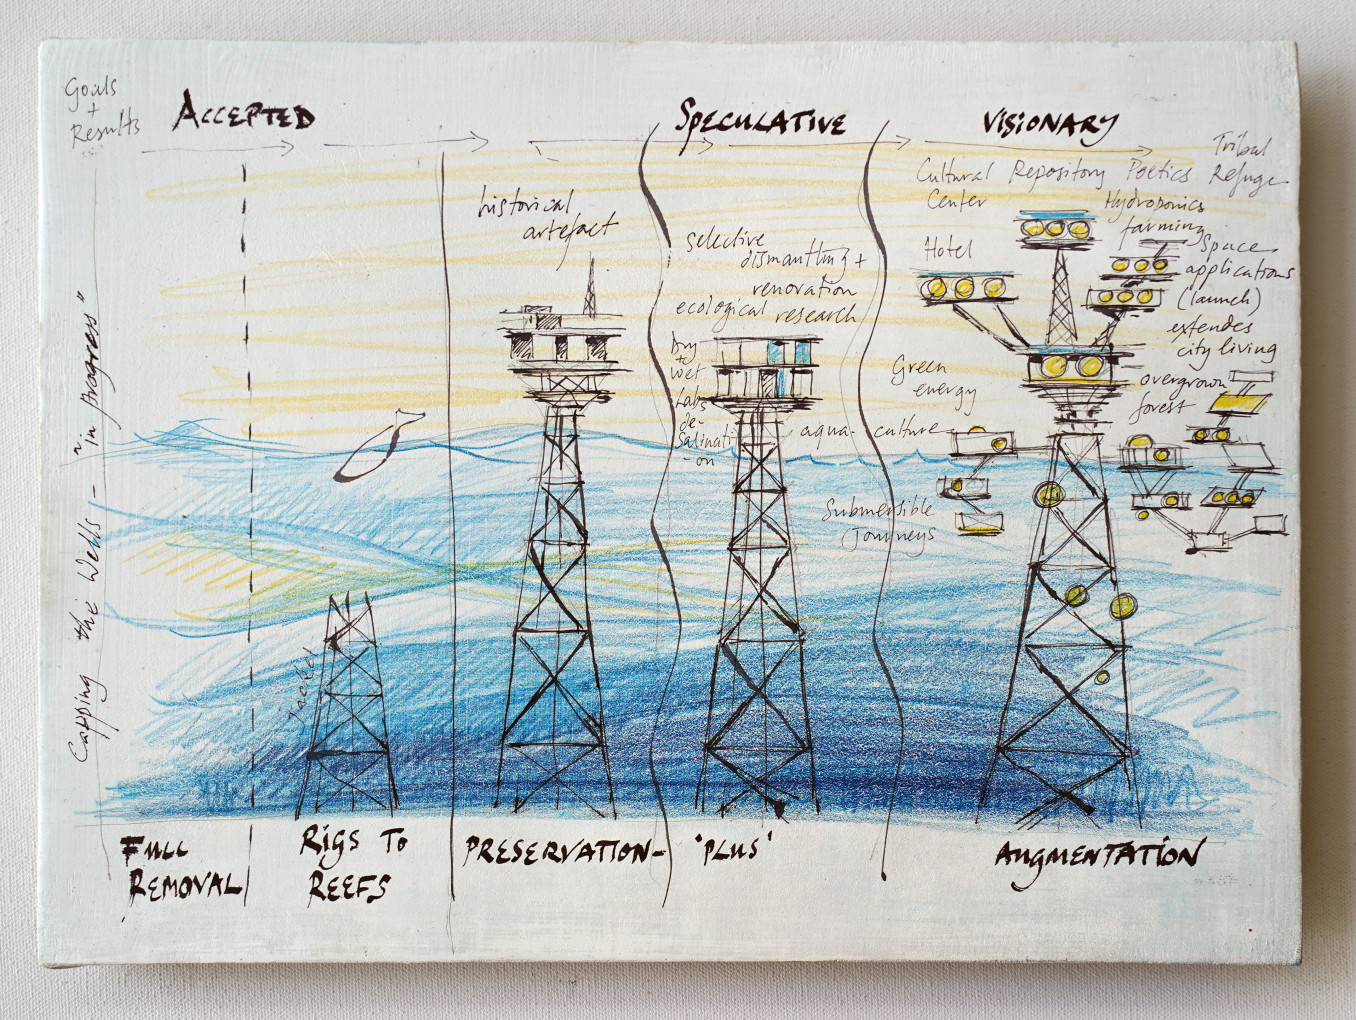 Goals
+
Results
ACCEPTED
SPECULATIVE
VISIONARY
Capping the Wells - "in progress"
historical
artefact
selective
dismantling +
renovation
ecological research
Dry
+
Wet
Labs
de-
Salinati
-on
aqua-culture
Submersible
Journeys
Cultural
Center
Repository
Poetics
Tribal
Refuge
Hotel
Hydroponics
farming
Space
applications
(launch)
extendes
city living
Green
energy
overgrown
forest
FULL
REMOVAL
RIGS TO
REEFS
PRESERVATION - 'PLUS'
AUGMENTATION